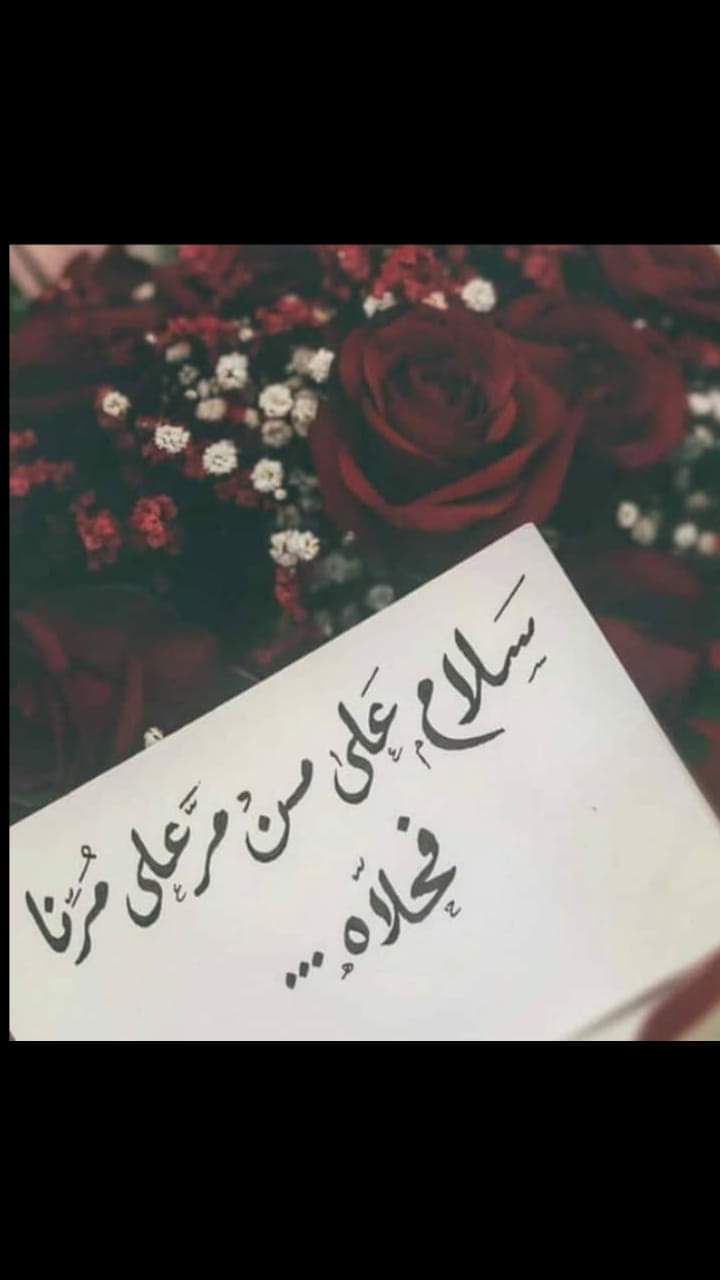 سَلام عَلىٰ منْ مرَّ على مُرِّنا
فحلاّه ...